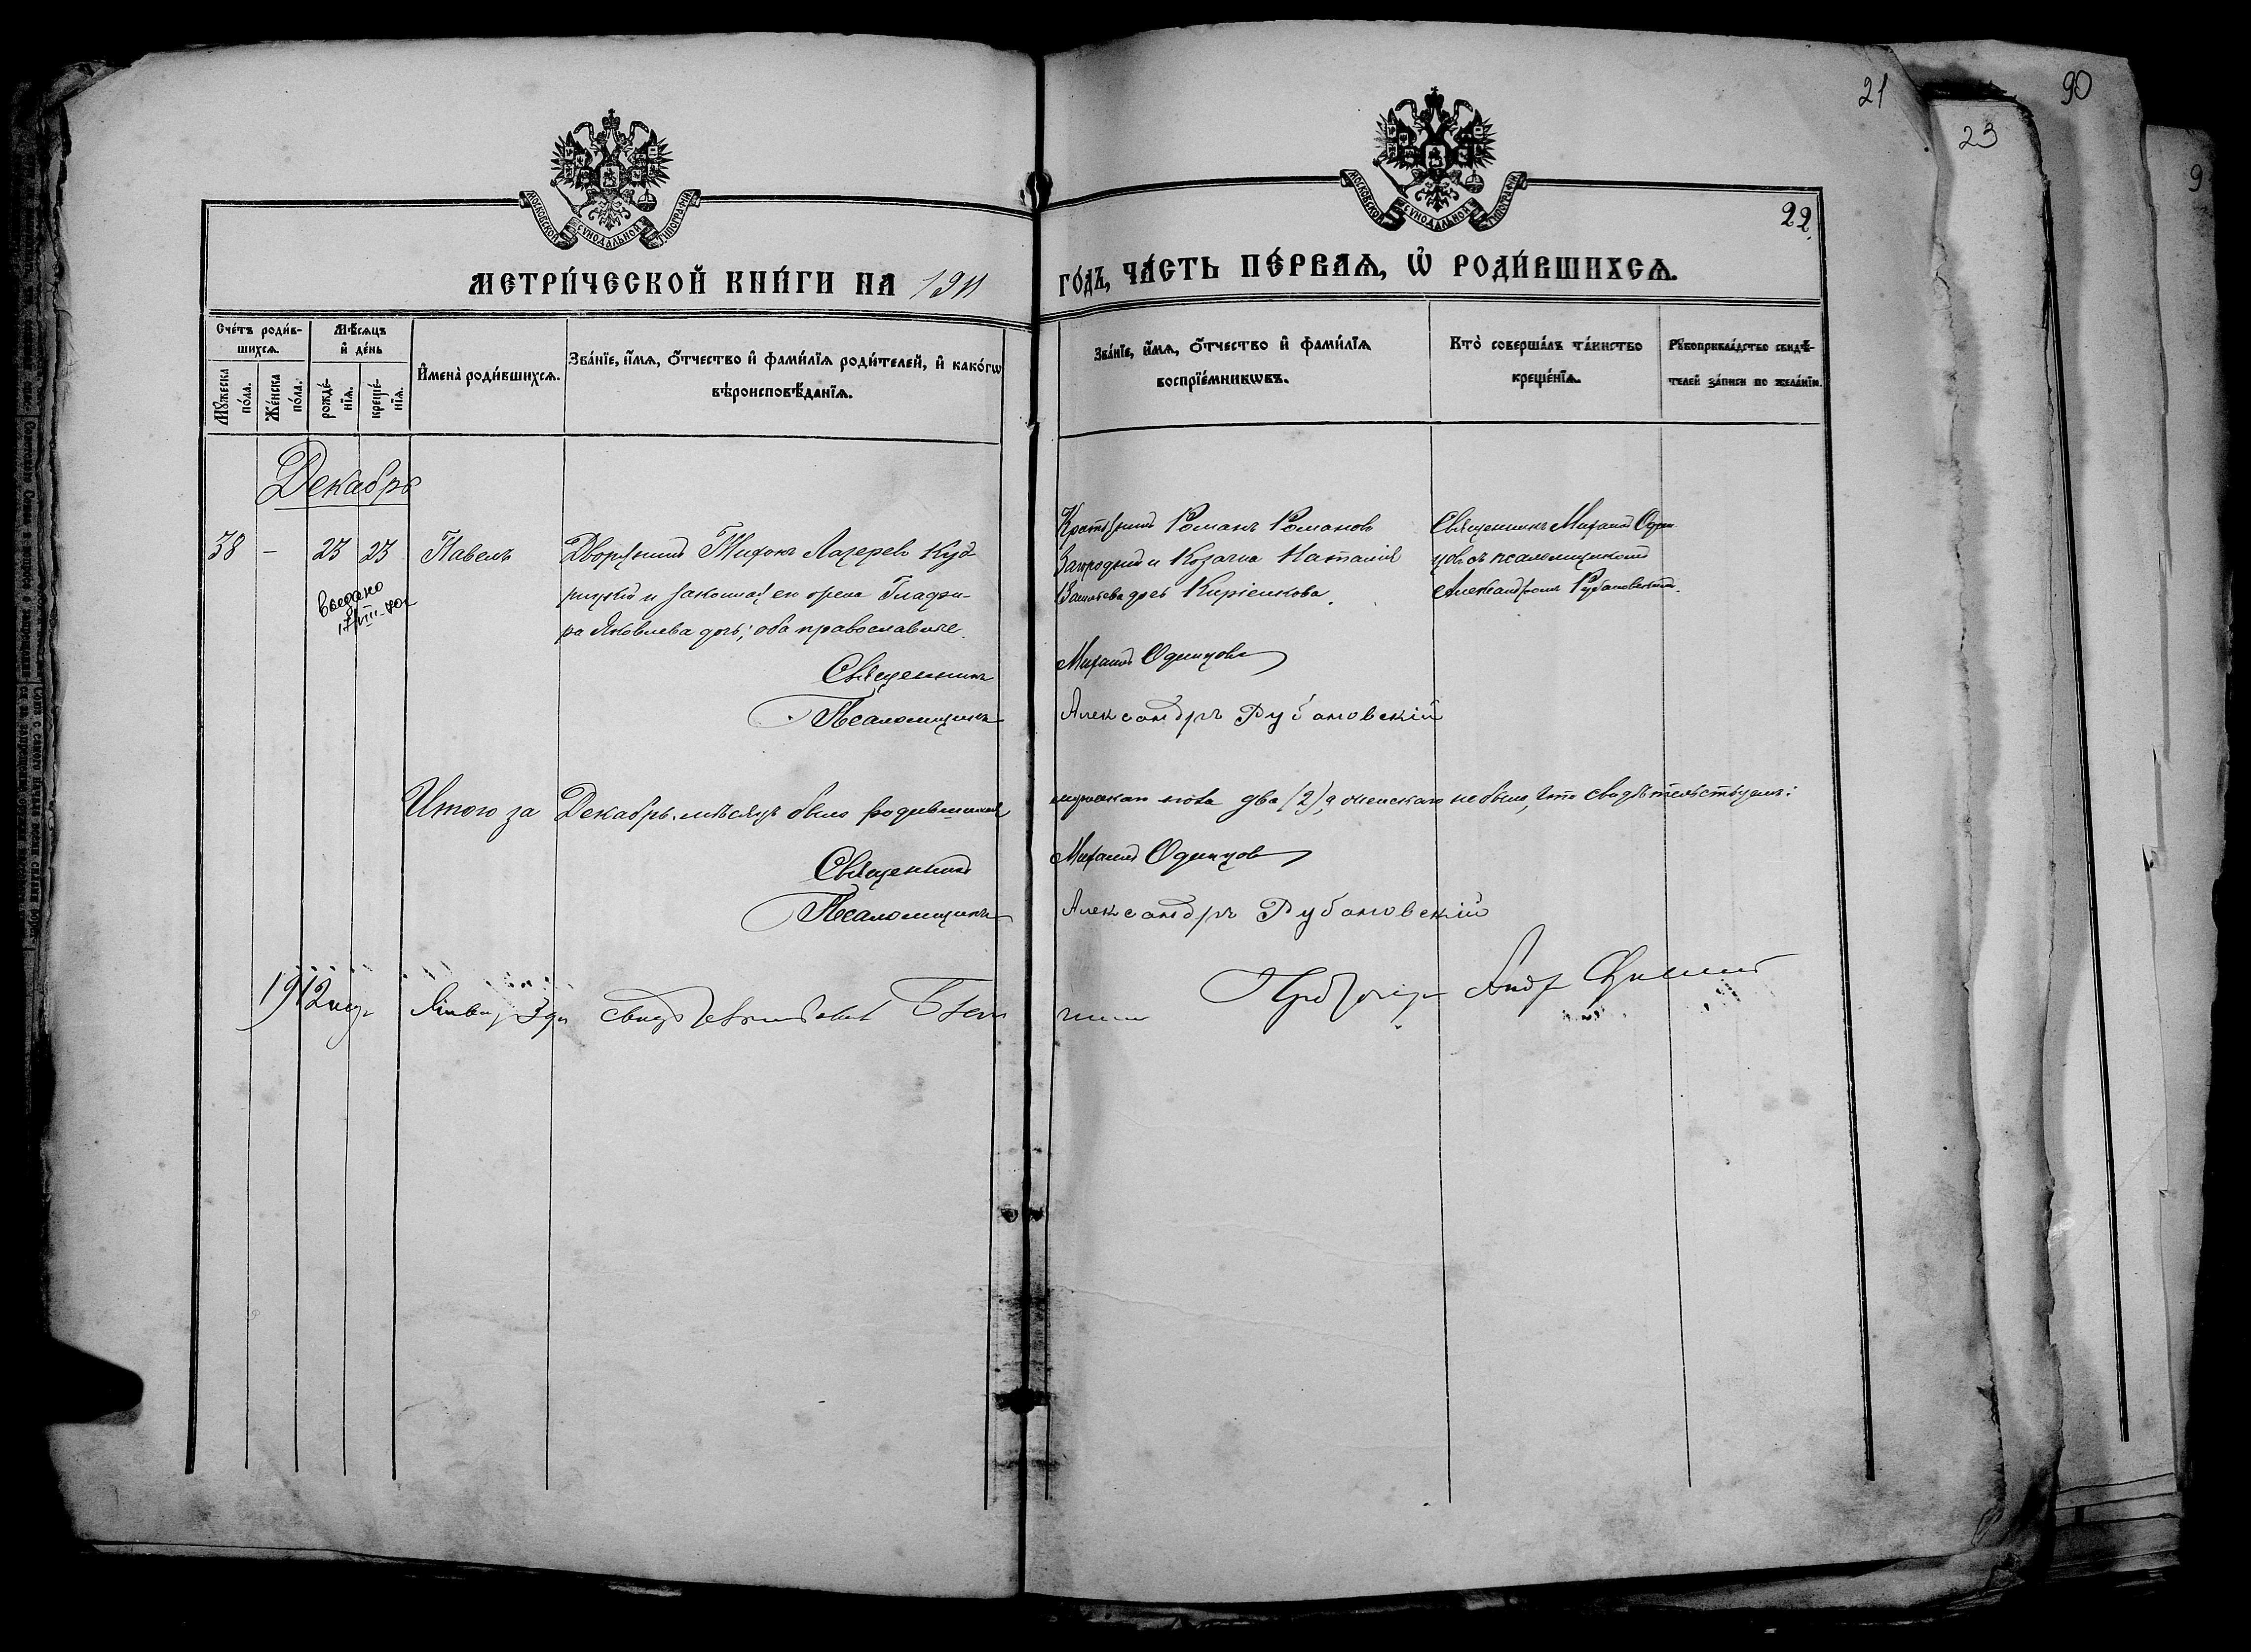 21
90
23
9
22.
МОСКОВСКОЙ СУНОДАЛЬНОЙ ТИПОГРАФІИ
МОСКОВСКОЙ СУНОДАЛЬНОЙ ТИПОГРАФІИ
МЕТРИ́ЧЕСКОЙ КНИ́ГИ НА 1911 ГО́ДЪ, ЧА́СТЬ ПЕ́РВАѦ, Ѡ҆ РОДИ́ВШИХСѦ.
Сче́тъ роди́в-
шихсѧ.
Мꙋ́жеска по́ла.
Же́нска по́ла.
Мѣ́сѧцъ
и҆ де́нь
рожде́-
нїѧ.
креще́-
нїѧ.
И҆мена̀ роди́вшихсѧ.
Зва́нїе, и҆́мѧ, ѻ҆́тчество и҆ фами́лїѧ роди́телей, и҆ како́гѡ
вѣроисповѣ́данїѧ.
Зва́нїе, и҆́мѧ, ѻ҆́тчество и҆ фами́лїѧ
воспрїе́мникѡвъ.
Кто̀ соверша́лъ та́инство
креще́нїѧ.
Рꙋкоприкла́дство свидѣ́-
телей за́писи по жела́нїю.
Декабрь
38 – 23 23 Павелъ
Дворянинъ Тихонъ Лазаревъ Куд-
рицкій и законная его жена Глафи-
ра Яковлева дочь; оба православные.
введено
17/VIII-70г
Романъ Романовъ
и Козачка Наталія
дочь Киріенкова.
Священникъ Михаилъ Один-
цовъ съ псаломщикомъ
Александромъ Рубановскимъ.
Священникъ Михаилъ Одинцовъ
Псаломщикъ Александръ Рубановскій
Итого за Декабрь мѣсяцъ было родившихся мужескаго пола два (2), а женскаго не было, что свидѣтельствуемъ:
Священникъ Михаилъ Одинцовъ
Псаломщикъ Александръ Рубановскій
1912 года Января 3 дня